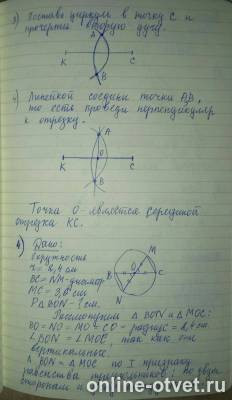 3) Поставь циркуль в точку С и
прочерти вторую дугу.
A
K C
B
4) Линейкой соедини точки AB,
то есть проведи перпендикуляр
к отрезку.
A
K O C
B
Точка О является серединой
отрезка КС.
Дано:
Окружность
r = 2,4 см
BC = NM - диаметр
MC = 3,6 см
P∆BON - ? см.
M
B O C
N
Рассмотрим ∆ BON и ∆ MOC:
BO = NO = MO = CO - радиус = 2,4 см
∠BON = ∠MOC, так как они
вертикальные.
∆ BON = ∆ MOC по I признаку
равенства треугольников: по двум
сторонам и
online-otvet.ru